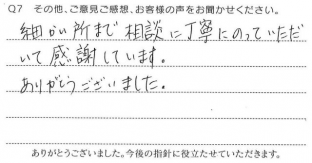 Q7 その他、ご意見ご感想、お客様の声をお聞かせください。
細かい所まで相談に丁寧にのっていただ
いて感謝しています。
ありがとうございました。
ありがとうございました。今後の指針に役立たせていただきます。